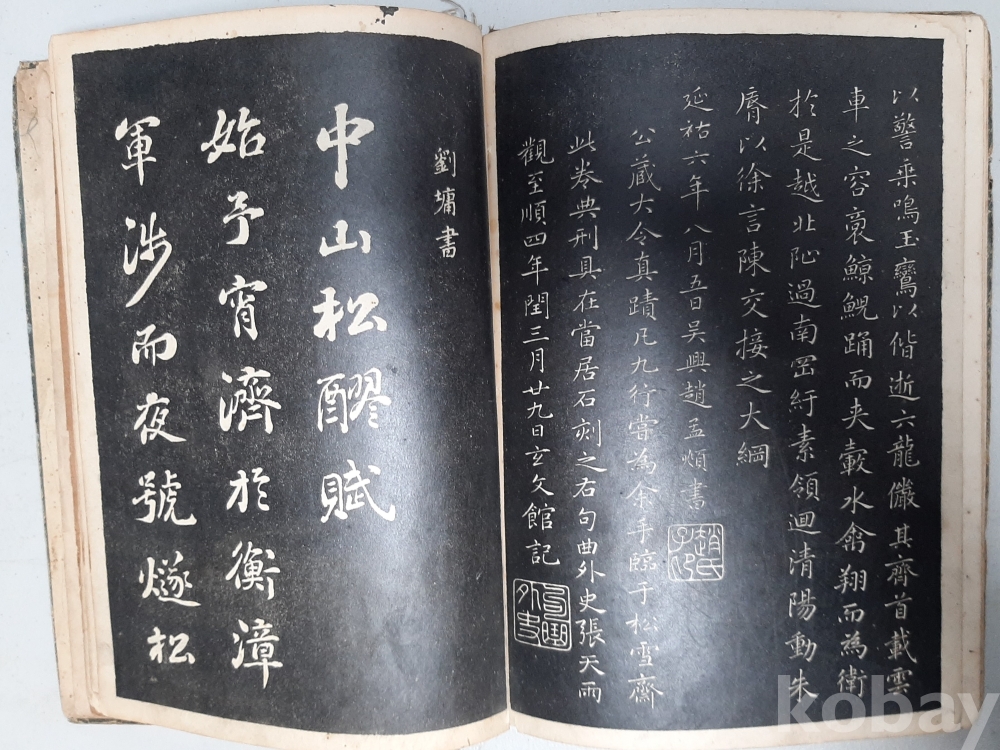 以警乘鳴玉鸞以偕逝六龍儼其齊首載雲
車之容裔鯨鯢踊而夾轂水禽翔而為衛
於是越北沚過南岡紆素領迴清陽動朱
脣以徐言陳交接之大綱
延祐六年八月五日吳興趙孟頫書
趙氏子昂
公蔵大令真蹟凡九行嘗為余手臨于松雪齋
此卷典刑具在當居石刻之右句曲外史張天雨
觀至順四年閏三月廿九日玄文館記
句曲外史
劉墉書
中山松醪賦
始予宵濟於衡漳
軍涉而夜號燧松
kobay